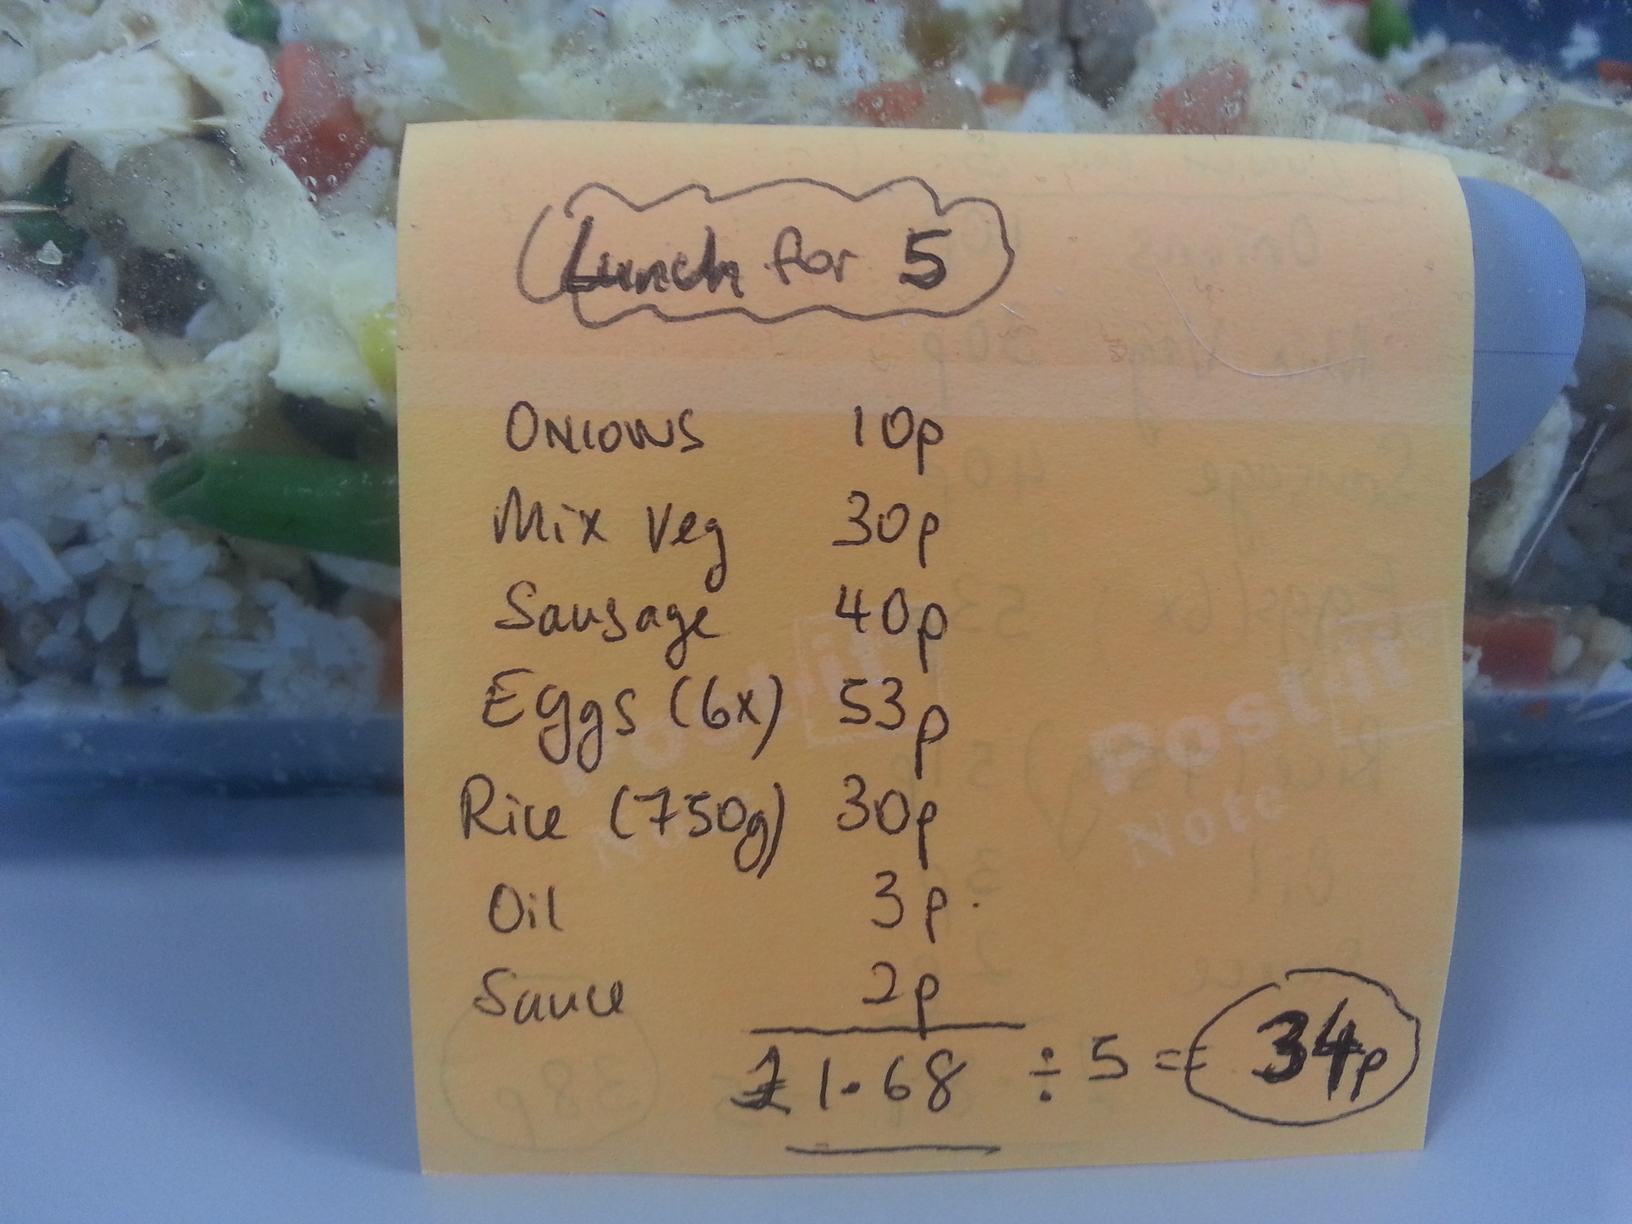 Lunch for 5
Onions 10p
Mix Veg 30p
Sausage 40p
Eggs (6x) 53p
Rice (750g) 30p
Oil 3p.
Sauce 2p
£1.68 ÷ 5 = 34p
Post it
Note
Post it
Note